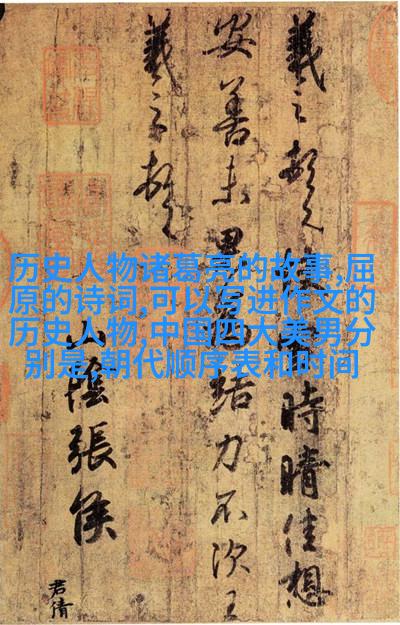 羲之頓首快雪時晴佳想
安善未果為結力不次王
羲之頓首
山陰張侯
君倩
历史人物诸葛亮的故事,屈
原的诗词,可以写进作文的
历史人物,中国四大美男分
别是,朝代顺序表和时间